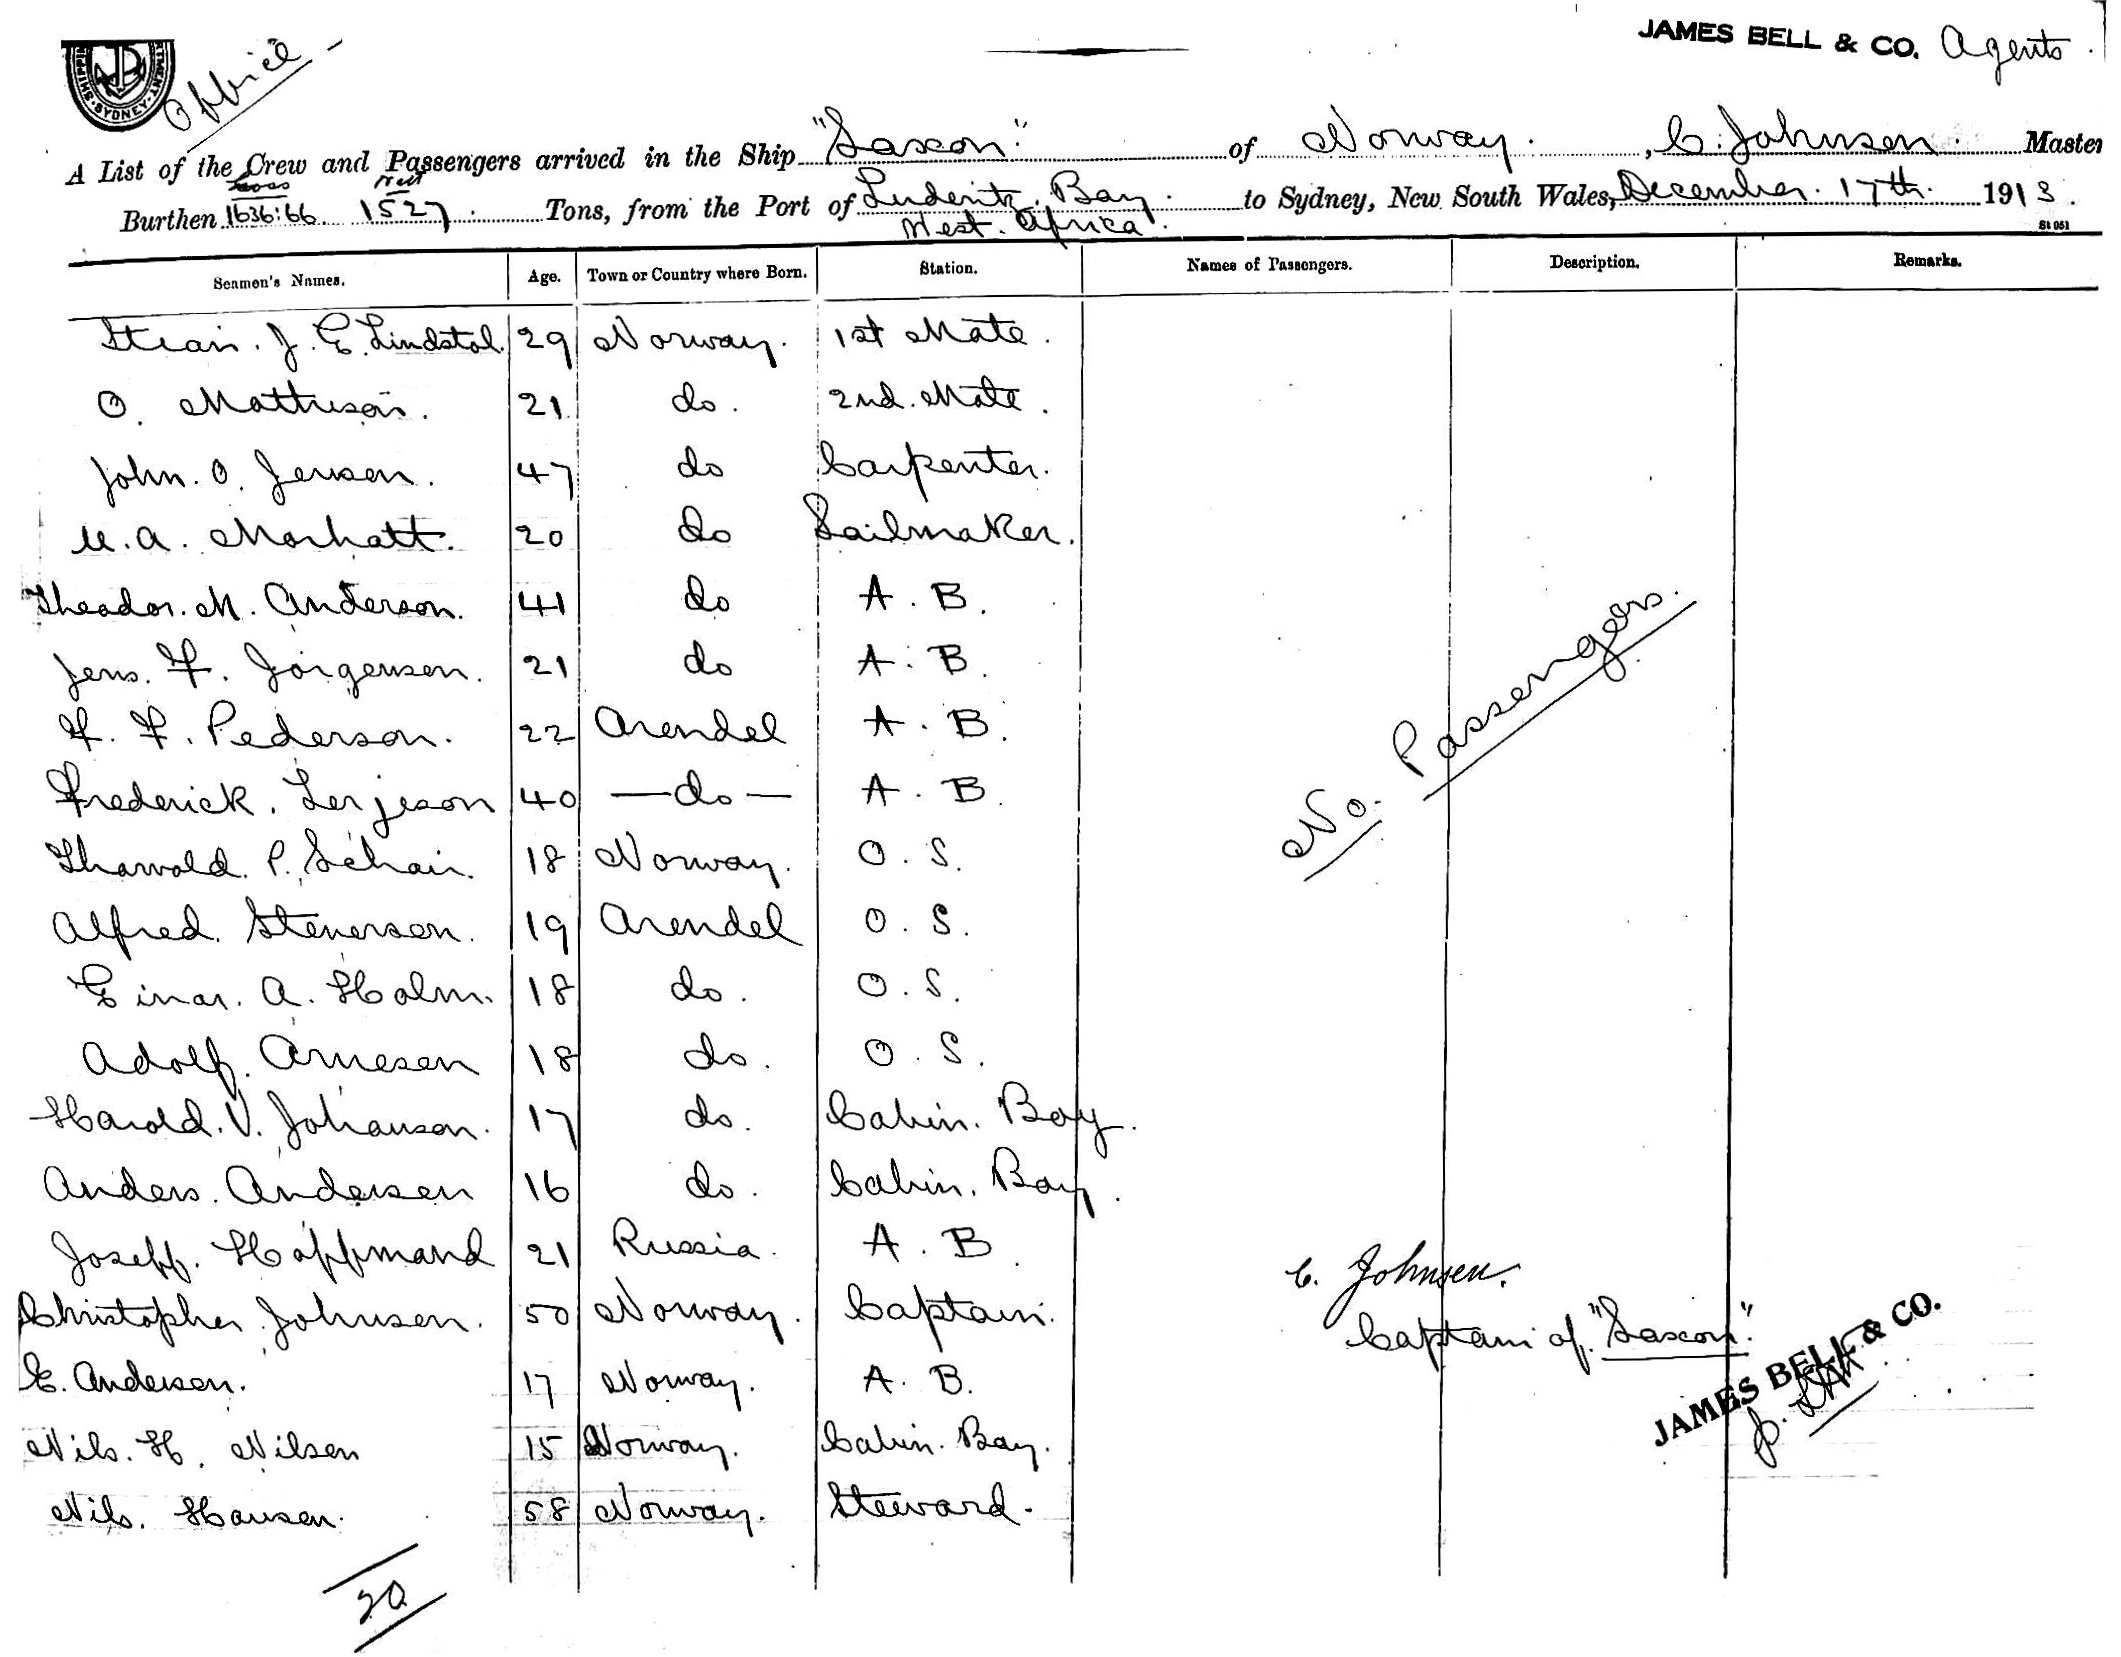 JAMES BELL & CO. Agents
SYDNEY
Office
A List of the Crew and Passengers arrived in the Ship "Saxon" of Norway, C. Johnsen Master
Gross Nett
Burthen 1636:66 1527 Tons, from the Port of Luderitz Bay. to Sydney, New South Wales, December 17th 1913.
West. Africa.
St 051
Seamen's Names. Age. Town or Country where Born. Station. Names of Passengers. Description. Remarks.
J. E. Lindstol. 29 Norway. 1st Mate.
O. Mathisen. 21 do. 2nd. Mate.
John. O. Jensen. 47 do Carpenter.
A. 20 do Sailmaker.
Theodor. M. Anderson. 41 do A. B.
Jens. F. Jorgensen. 21 do A. B.
F. F. Pederson. 22 Arendel A. B.
Frederick. Terjeson 40 —do— A. B.
Tharvald. P. 18 Norway. O. S.
Alfred. Stenerson. 19 Arendel O. S.
Einar. A. Holm. 18 do. O. S.
Adolf. Arnesen 18 do. O. S.
Harold. V. Johansen. 17 do. Cabin. Boy.
Anders. Andersen 16 do. Cabin. Boy.
Joseff. Hoffmand 21 Russia. A. B
Christopher Johnsen. 50 Norway. Captain.
E. Andersen. 17 Norway. A. B.
Nils. H. Nilsen 15 Norway. Cabin. Boy.
Nils. Hansen. 58 Norway. Steward.
20
No. Passengers.
C. Johnsen.
Captain of "Saxon".
JAMES BELL & CO.